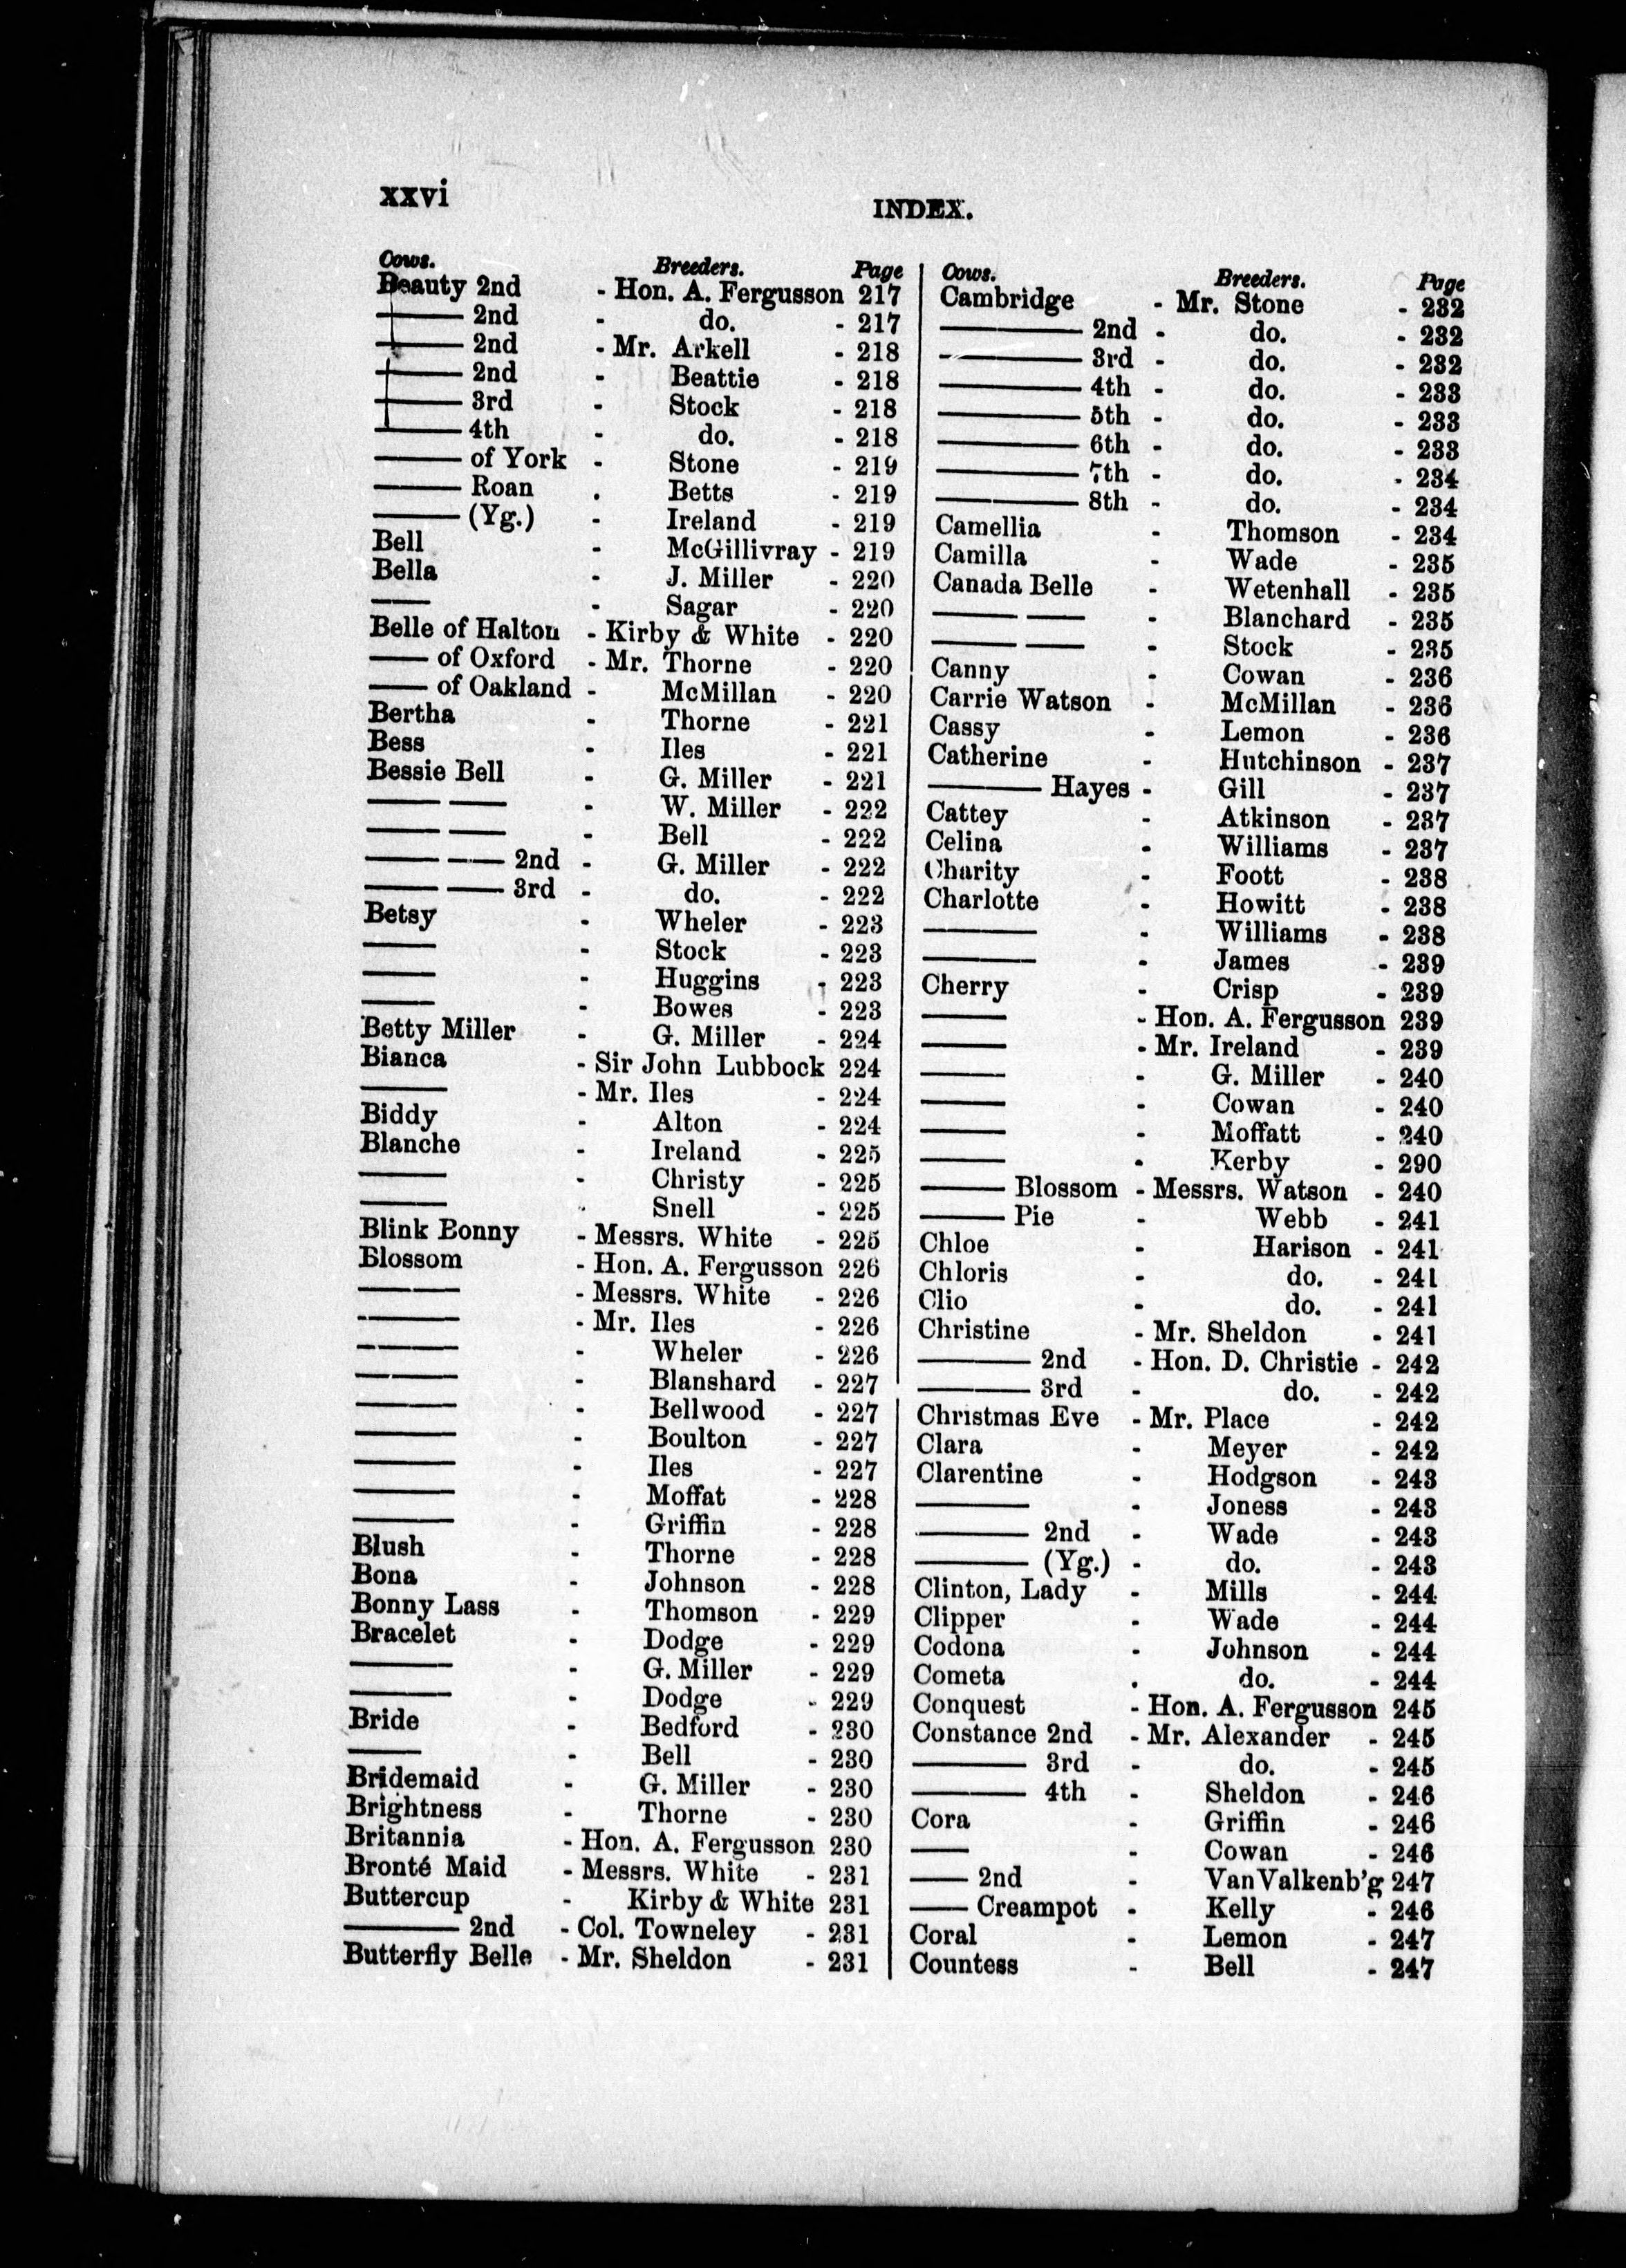 xxvi
INDEX.
Cows. Breeders. Page
Beauty 2nd - Hon. A. Fergusson 217
——— 2nd - do. - 217
——— 2nd - Mr. Arkell - 218
——— 2nd - Beattie - 218
——— 3rd - Stock - 218
——— 4th - do. - 218
——— of York - Stone - 219
——— Roan - Betts - 219
——— (Yg.) - Ireland - 219
Bell - McGillivray - 219
Bella - J. Miller - 220
—— - Sagar - 220
Belle of Halton - Kirby & White - 220
—— of Oxford - Mr. Thorne - 220
—— of Oakland - McMillan - 220
Bertha - Thorne - 221
Bess - Iles - 221
Bessie Bell - G. Miller - 221
—— —— - W. Miller - 222
—— —— - Bell - 222
—— —— 2nd - G. Miller - 222
—— —— 3rd - do. - 222
Betsy - Wheler - 223
—— - Stock - 223
—— - Huggins - 223
—— - Bowes - 223
Betty Miller - G. Miller - 224
Bianca - Sir John Lubbock 224
——— - Mr. Iles - 224
Biddy - Alton - 224
Blanche - Ireland - 225
——— - Christy - 225
——— - Snell - 225
Blink Bonny - Messrs. White - 225
Blossom - Hon. A. Fergusson 226
——— - Messrs. White - 226
——— - Mr. Iles - 226
——— - Wheler - 226
——— - Blanshard - 227
——— - Bellwood - 227
——— - Boulton - 227
——— - Iles - 227
——— - Moffat - 228
——— - Griffin - 228
Blush - Thorne - 228
Bona - Johnson - 228
Bonny Lass - Thomson - 229
Bracelet - Dodge - 229
——— - G. Miller - 229
——— - Dodge - 229
Bride - Bedford - 230
—— - Bell - 230
Bridemaid - G. Miller - 230
Brightness - Thorne - 230
Britannia - Hon. A. Fergusson 230
Bronté Maid - Messrs. White - 231
Buttercup - Kirby & White 231
———— 2nd - Col. Towneley - 231
Butterfly Belle - Mr. Sheldon - 231
Cows. Breeders. Page
Cambridge - Mr. Stone - 232
———— 2nd - do. - 232
———— 3rd - do. - 232
———— 4th - do. - 233
———— 5th - do. - 233
———— 6th - do. - 233
———— 7th - do. - 234
———— 8th - do. - 234
Camellia - Thomson - 234
Camilla - Wade - 235
Canada Belle - Wetenhall - 235
——— —— - Blanchard - 235
——— —— - Stock - 235
Canny - Cowan - 236
Carrie Watson - McMillan - 236
Cassy - Lemon - 236
Catherine - Hutchinson - 237
———— Hayes - Gill - 237
Cattey - Atkinson - 237
Celina - Williams - 237
Charity - Foott - 238
Charlotte - Howitt - 238
———— - Williams - 238
———— - James - 239
Cherry - Crisp - 239
——— - Hon. A. Fergusson 239
——— - Mr. Ireland - 239
——— - G. Miller - 240
——— - Cowan - 240
——— - Moffatt - 240
——— - Kerby - 290
——— Blossom - Messrs. Watson - 240
——— Pie - Webb - 241
Chloe - Harison - 241
Chloris - do. - 241
Clio - do. - 241
Christine - Mr. Sheldon - 241
———— 2nd - Hon. D. Christie - 242
———— 3rd - do. - 242
Christmas Eve - Mr. Place - 242
Clara - Meyer - 242
Clarentine - Hodgson - 243
———— - Joness - 243
———— 2nd - Wade - 243
———— (Yg.) - do. - 243
Clinton, Lady - Mills - 244
Clipper - Wade - 244
Codona - Johnson - 244
Cometa - do. - 244
Conquest - Hon. A. Fergusson 245
Constance 2nd - Mr. Alexander - 245
———— 3rd - do. - 245
———— 4th - Sheldon - 246
Cora - Griffin - 246
—— - Cowan - 246
—— 2nd - VanValkenb'g 247
—— Creampot - Kelly - 246
Coral - Lemon - 247
Countess - Bell - 247